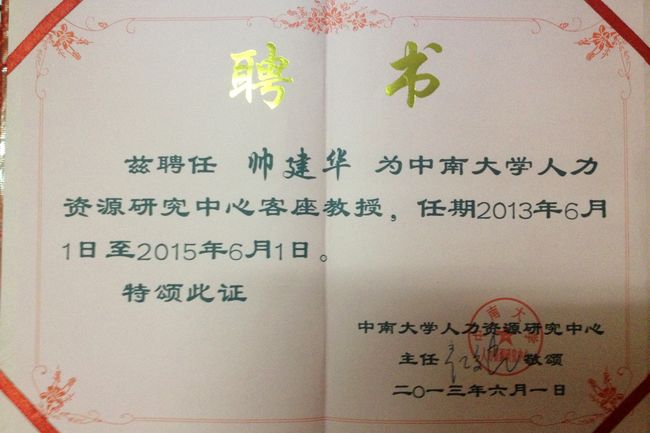 聘 书
兹聘任 帅建华 为中南大学人力
资源研究中心客座教授，任期2013年6月
1日至2015年6月1日。
特颂此证
中南大学人力资源研究中心
主任 敬颂
二〇一三年六月一日